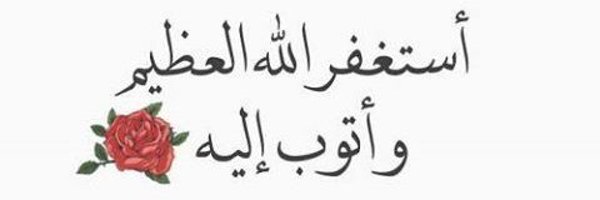 أستغفر الله العظيم
وأتوب إليه